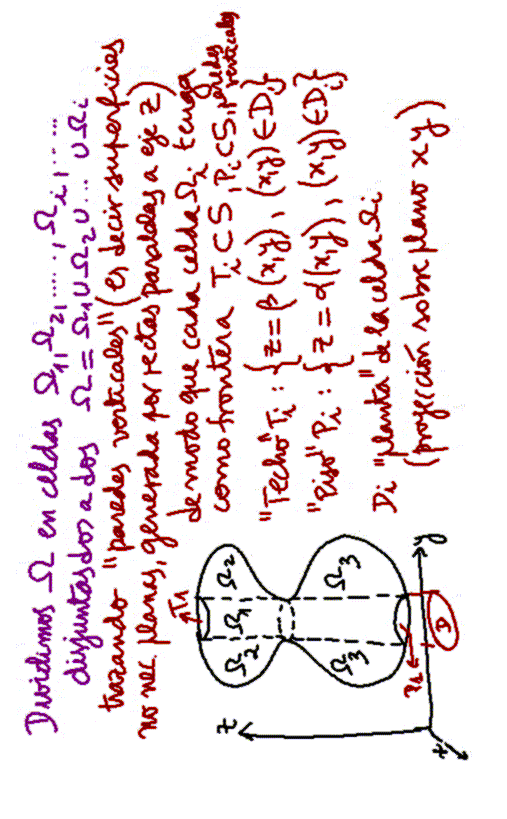 Dividimos Ω en celdas Ω₁, Ω₂, ....., Ωᵢ, .....
disjuntas dos a dos Ω = Ω₁ ∪ Ω₂ ∪ ... ∪ Ωᵢ
trazando "paredes verticales" (es decir superficies
no nec. planas, generada por rectas paralelas a eje z)
de modo que cada celda Ωᵢ tenga
como frontera Tᵢ ⊂ S, Pᵢ ⊂ S, paredes
verticales
"Techo" Tᵢ : { z = β(x,y), (x,y) ∈ Dᵢ}
"Piso" Pᵢ : { z = α(x,y), (x,y) ∈ Dᵢ}
Dᵢ "planta" de la celda Ωᵢ
(proyección sobre plano xy)
z
T₁
Ω₂ Ω₁ Ω₂
Ω₃ Ω₃
P₁
D
y
x